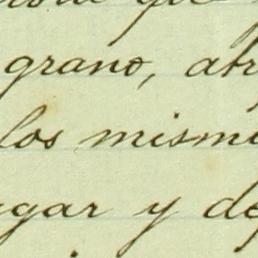 que
grano, abr
los mism
gar y de